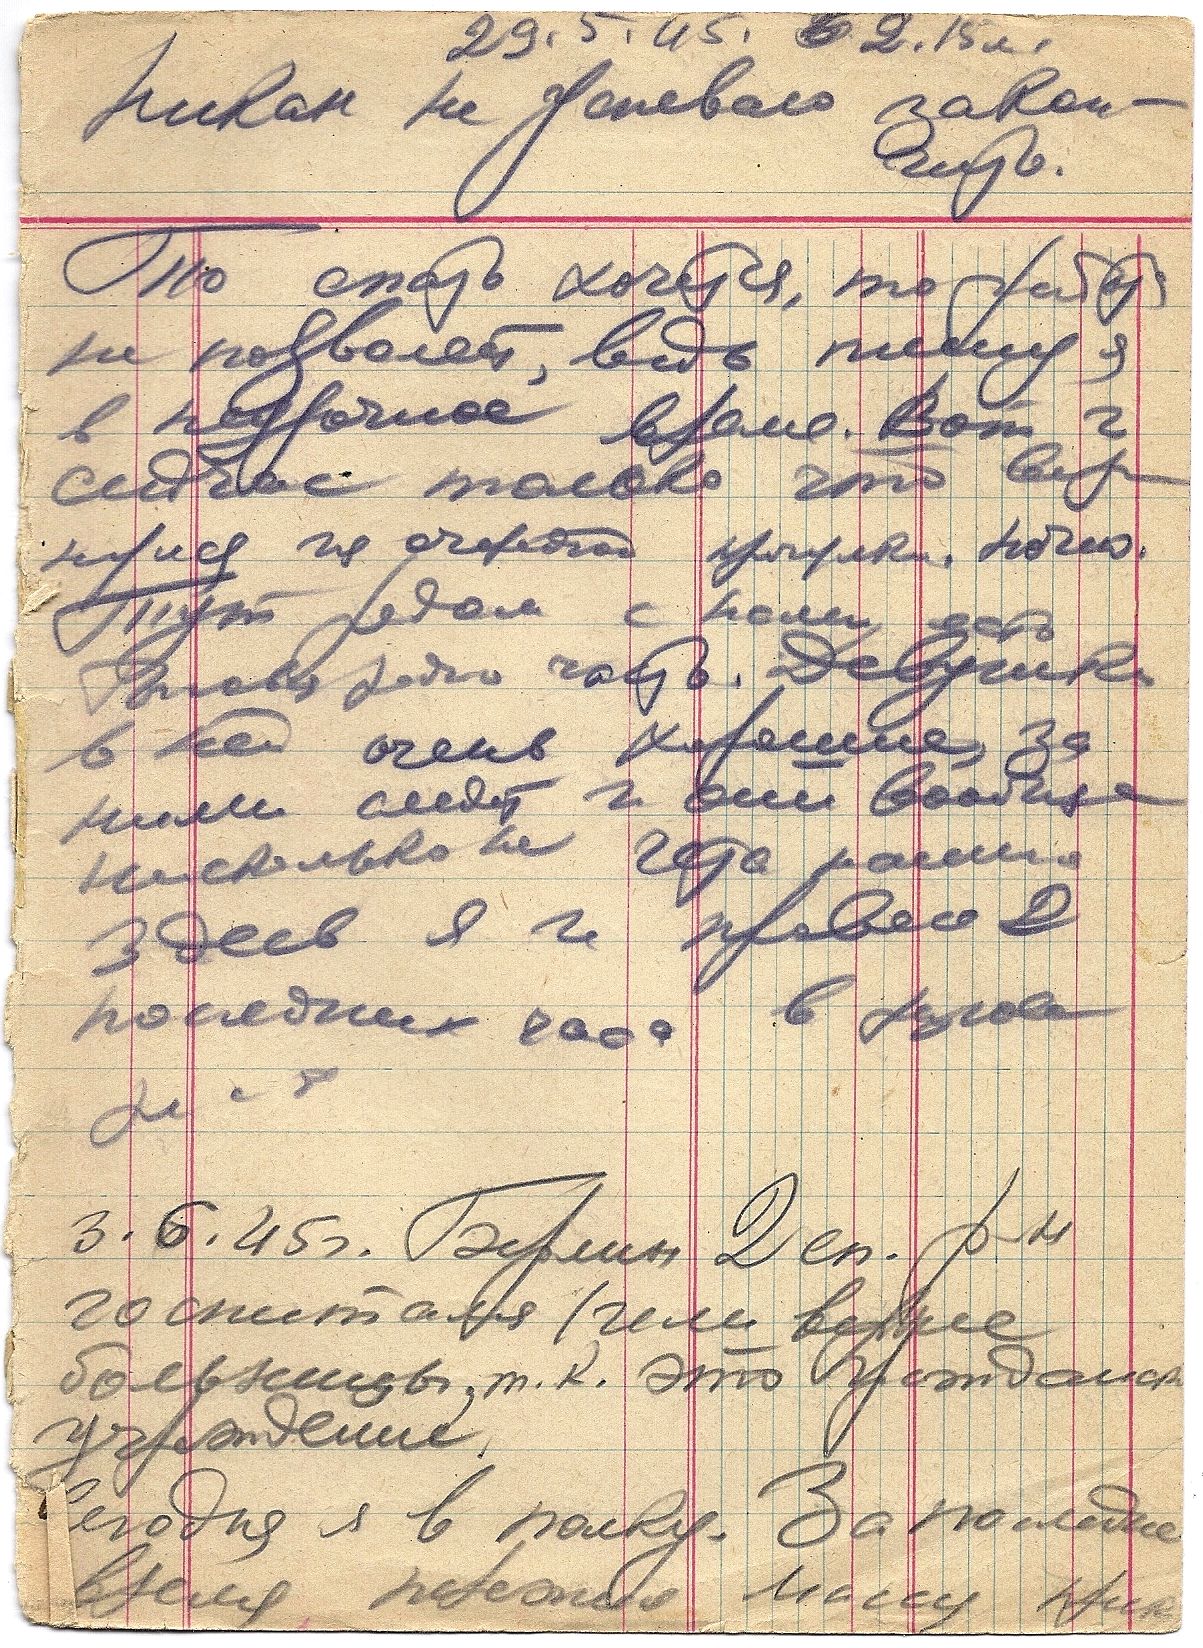 29.5.45. 2.15м.
Никак не успеваю закон-
чить.
То спать хочется, то работа
не позволяет, ведь пишу я
в неурочное время. Вот и
сейчас только что вер-
нулся из очередной прогулки. ночью.
Тут рядом с нами есть
часть. Девушки
в ней очень хорошие, за
ними следят и они вообще
нисколько не
Здесь я и провел 2
последних часа в
3.6.45г. Берлин Деп. р-н
госпиталя (или вернее
больницы, т.к. это гражданск
учреждение.
Сегодня я в полку. За последнее
время пережил массу прик